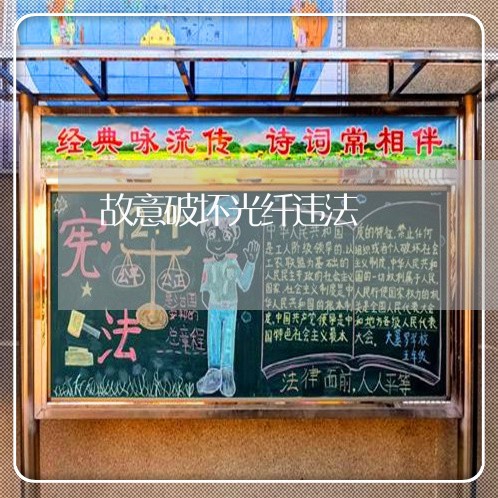 经典咏流传 诗词常相伴
故意破坏光纤违法
宪
法
公平
公正
中华人民共和国
是工人阶级领导的,以
工农联盟为基础的
人民民主专政的社会主义
国家,社会主义制度是中
华人民共和国的根本制
度,中国共产党领导是中
国特色社会主义最本
质的特征,禁止任何
组织或者个人破坏社会
主义制度,中华人民共和
国的一切权利属于人民,
人民行使国家权力的机
关是全国人民代表大会
和地方各级人民代表
大会。
五年级
法律面前,人人平等